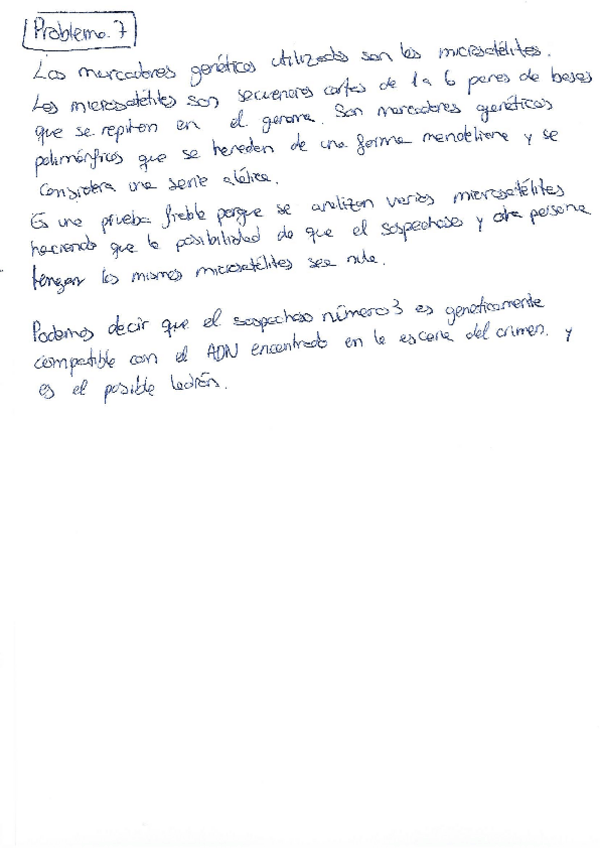 Problema. 7
Los marcadores genéticos utilizados son los microsatélites.
Los microsatélites son secuencias cortas de 1 a 6 pares de bases
que se repiten en el genoma. Son marcadores genéticos
polimórficos que se heredan de una forma mendeliana y se
considera una serie alélica.
Es una prueba fiable porque se analizan varios microsatélites
haciendo que la posibilidad de que el sospechoso y otra persona
tengan los mismos microsatélites sea nula.
Podemos decir que el sospechoso número 3 es genéticamente
compatible con el ADN encontrado en la escena del crimen. y
es el posible ladrón.